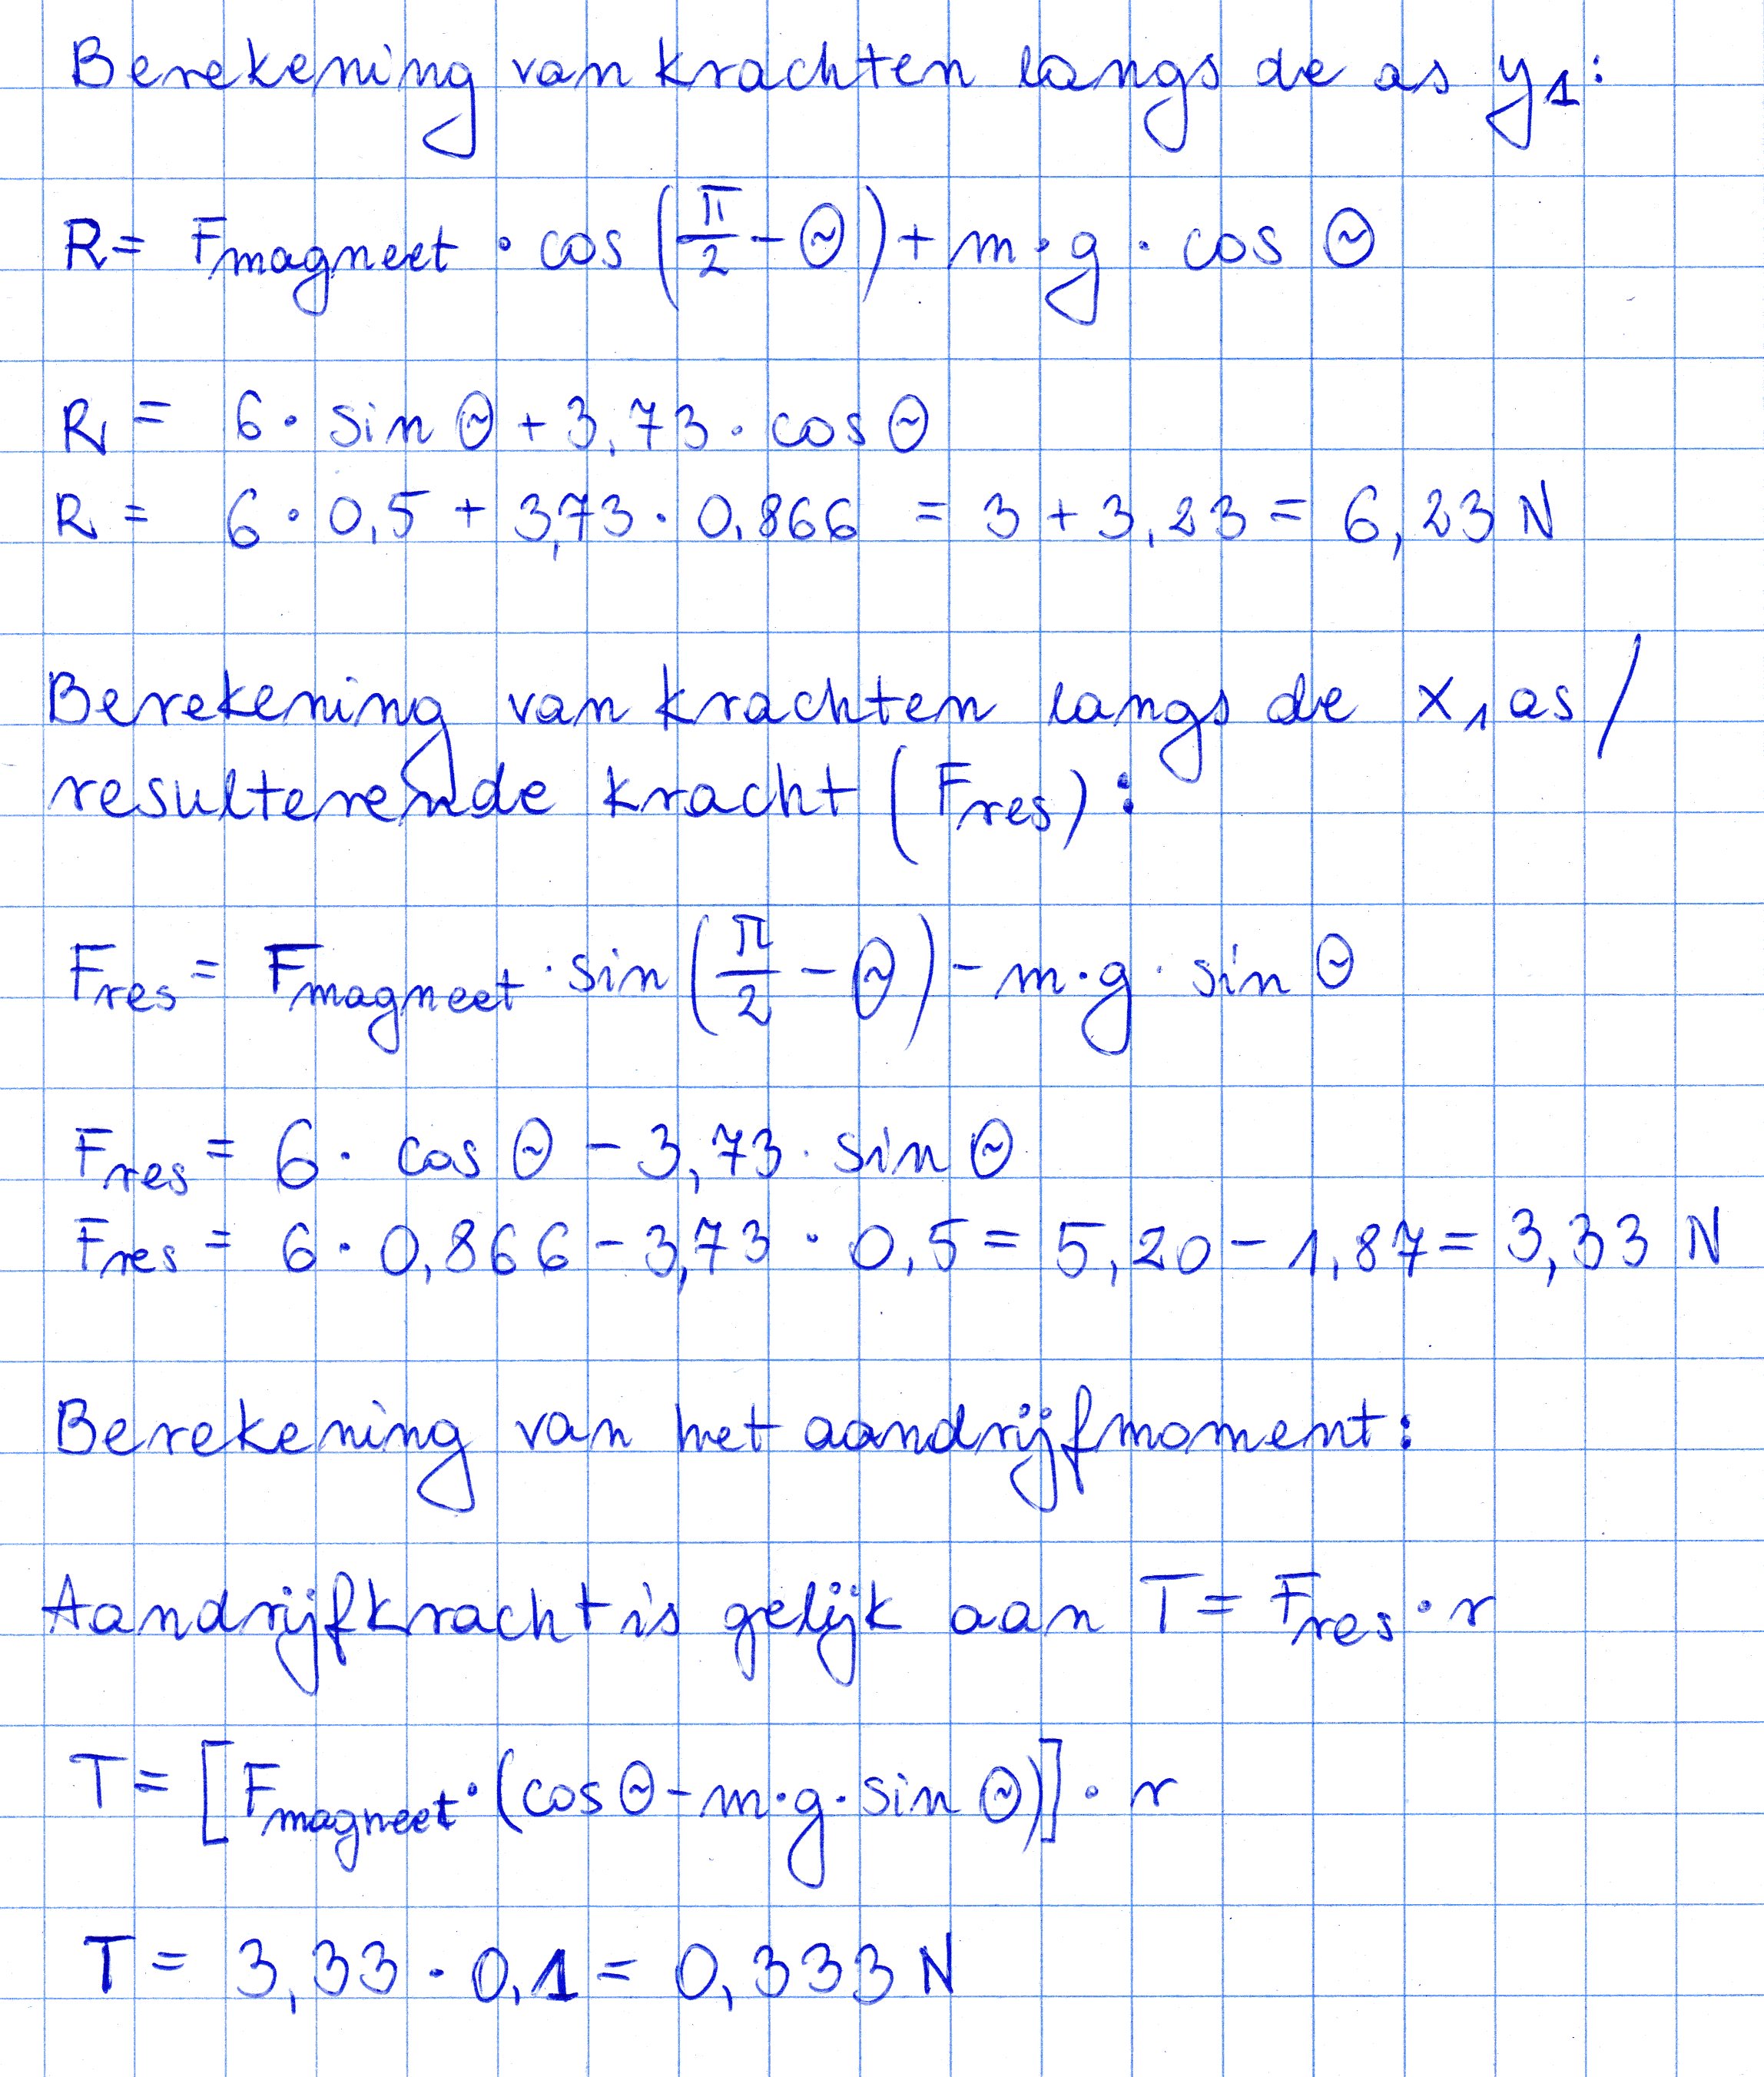 Berekening van krachten langs de as y₁:
R = Fmagneet · cos (π/2 - Θ) + m · g · cos Θ
R = 6 · sin Θ + 3,73 · cos Θ
R = 6 · 0,5 + 3,73 · 0,866 = 3 + 3,23 = 6,23 N
Berekening van krachten langs de x₁ as /
resulterende kracht (Fres):
Fres = Fmagneet · sin (π/2 - Θ) - m · g · sin Θ
Fres = 6 · cos Θ - 3,73 · sin Θ
Fres = 6 · 0,866 - 3,73 · 0,5 = 5,20 - 1,87 = 3,33 N
Berekening van het aandrijfmoment:
Aandrijfkracht is gelijk aan T = Fres · r
T = [Fmagneet · (cos Θ - m · g · sin Θ)] · r
T = 3,33 · 0,1 = 0,333 N